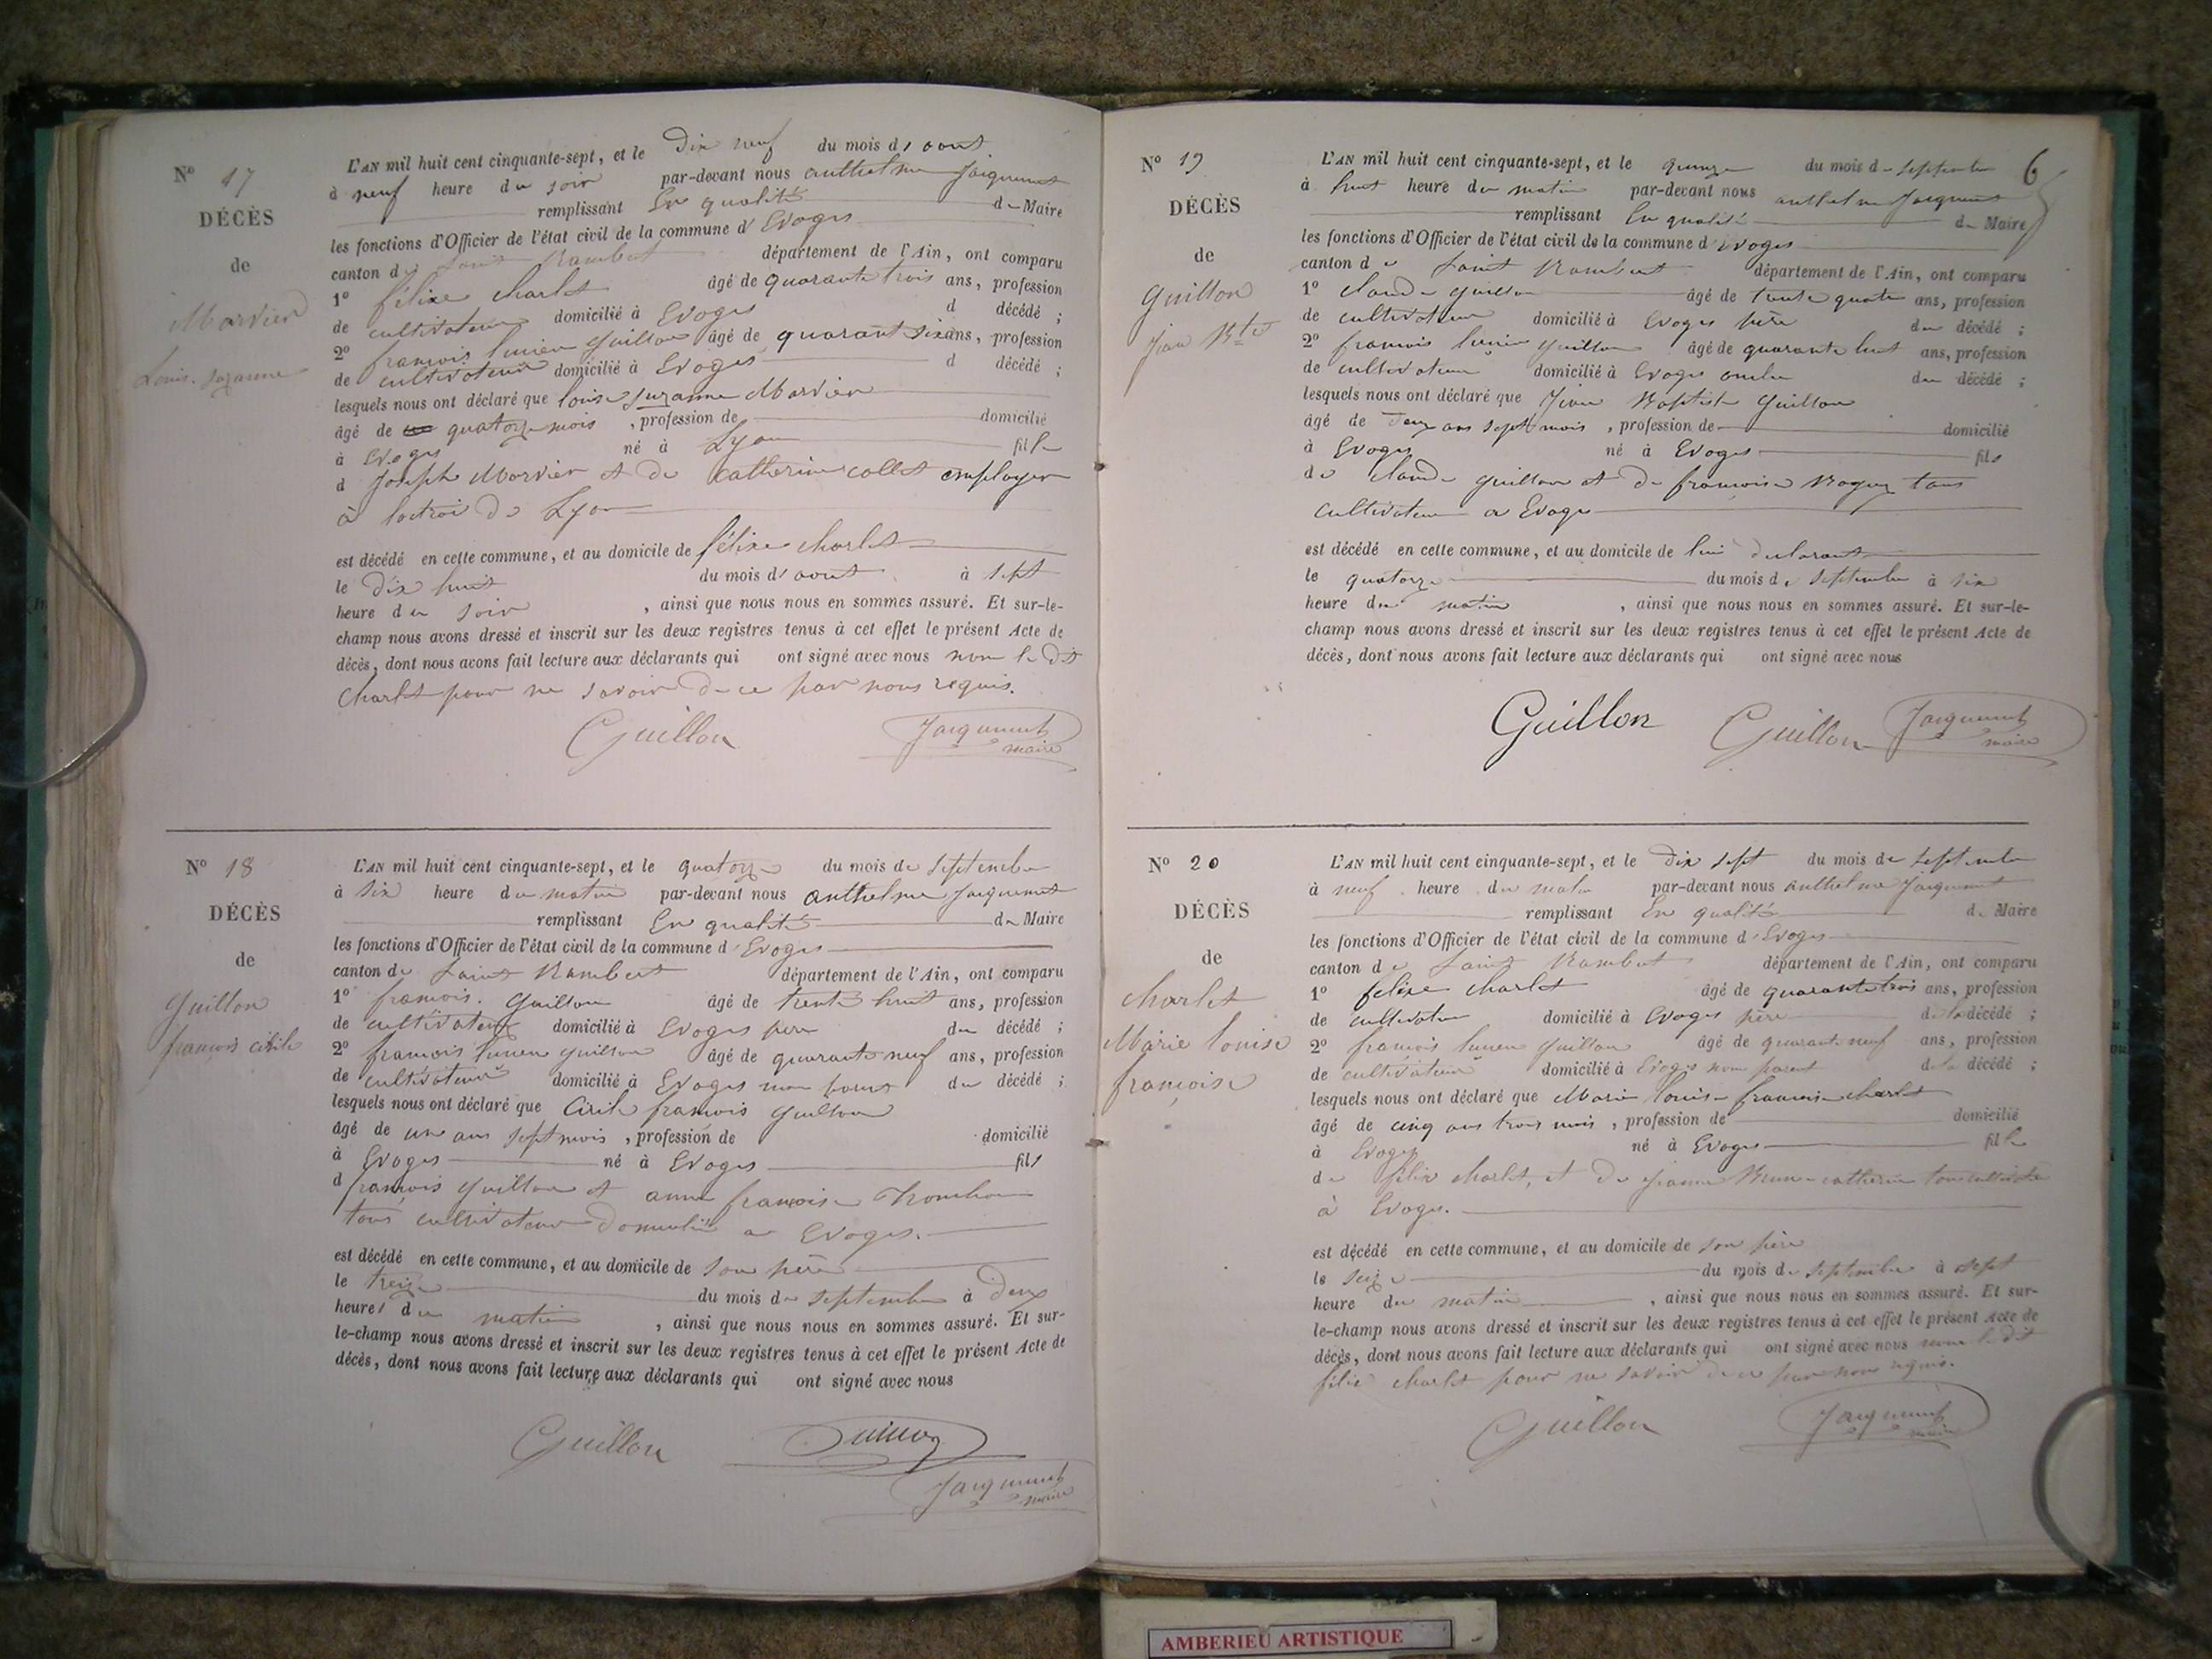 N° 17
DÉCÈS
de
Marvier
Louise Suzanne
L'AN mil huit cent cinquante-sept, et le Dix neuf du mois d'aout
à neuf heure du soir par-devant nous anthelme Jacquemet
remplissant En qualité de Maire
les fonctions d'Officier de l'état civil de la commune d'Evoges
canton de Saint Rambert département de l'Ain, ont comparu
1° félixe charlet âgé de quarante trois ans, profession
de cultivateur domicilié à Evoges d décédé ;
2° francois lucien guillon âgé de quarant sixans, profession
de cultivateur domicilié à Evoges d décédé ;
lesquels nous ont déclaré que louise suzanne Marvier
âgé de quatorze mois , profession de domicilié
à Evoges né à Lyon fille
d Joseph Marvier et de Catherine collet employer
à loctroi de Lyon
est décédé en cette commune, et au domicile de félixe charlet
le Dix huit du mois d'aout à sept
heure du soir , ainsi que nous nous en sommes assuré. Et sur-le-
champ nous avons dressé et inscrit sur les deux registres tenus à cet effet le présent Acte de
décès, dont nous avons fait lecture aux déclarants qui ont signé avec nous non le Dit
Charlet pour ne savoir de ce par nous requis.
Guillon Jacquemet
maire
N° 18
DÉCÈS
de
Guillon
francois cirile
L'AN mil huit cent cinquante-sept, et le quatorze du mois de septembre
à six heure du matin par-devant nous anthelme Jacquemet
remplissant En qualité de Maire
les fonctions d'Officier de l'état civil de la commune d'Evoges
canton de Saint Rambert département de l'Ain, ont comparu
1° francois. Guillon âgé de trente huit ans, profession
de cultivateur domicilié à Evoges père du décédé ;
2° francois lucien guillon âgé de quarante neuf ans, profession
de cultivateur domicilié à Evoges non parent du décédé ;
lesquels nous ont déclaré que Cirile francois guillon
âgé de un ans sept mois , profession de domicilié
à Evoges né à Evoges fils
d francois guillon et anne francoise
tous cultivateur Domicilié a Evoges.
est décédé en cette commune, et au domicile de son père
le treize du mois de septembre à Deux
heures du matin , ainsi que nous nous en sommes assuré. Et sur-
le-champ nous avons dressé et inscrit sur les deux registres tenus à cet effet le présent Acte de
décès, dont nous avons fait lecture aux déclarants qui ont signé avec nous
Guillon
Jacquemet
maire
N° 19
6
DÉCÈS
de
Guillon
jean Bte
L'AN mil huit cent cinquante-sept, et le quinze du mois de septembre
à huit heure du matin par-devant nous anthelme Jacquemet
remplissant En qualité de Maire
les fonctions d'Officier de l'état civil de la commune d'Evoges
canton de Saint Rambert département de l'Ain, ont comparu
1° claude guillon âgé de trente quatre ans, profession
de cultivateur domicilié à Evoges père du décédé ;
2° francois lucien guillon âgé de quarante huit ans, profession
de cultivateur domicilié à Evoges oncle du décédé ;
lesquels nous ont déclaré que Jean Baptiste Guillon
âgé de Deux ans sept mois , profession de domicilié
à Evoges né à Evoges fils
de claude guillon et de francoise tous
cultivateur a Evoges
est décédé en cette commune, et au domicile de declarant
le quatorze du mois de septembre à six
heure du matin , ainsi que nous nous en sommes assuré. Et sur-le-
champ nous avons dressé et inscrit sur les deux registres tenus à cet effet le présent Acte de
décès, dont nous avons fait lecture aux déclarants qui ont signé avec nous
Guillon Guillon Jacquemet
maire
N° 20
DÉCÈS
de
charlet
Marie louise
francoise
L'AN mil huit cent cinquante-sept, et le Dix sept du mois de septembre
à neuf heure du matin par-devant nous anthelme Jacquemet
remplissant En qualité de Maire
les fonctions d'Officier de l'état civil de la commune d'Evoges
canton de Saint Rambert département de l'Ain, ont comparu
1° felixe charlet âgé de quarante trois ans, profession
de cultivateur domicilié à Evoges père de la décédé ;
2° francois lucien guillon âgé de quarant neuf ans, profession
de cultivateur domicilié à Evoges non parent de la décédé ;
lesquels nous ont déclaré que Marie louise francoise charlet
âgé de cinq ans trois mois , profession de domicilié
à Evoges né à Evoges fille
de félix charlet, et De catherine tous cultivateur
à Evoges.
est décédé en cette commune, et au domicile de son père
le seize du mois de septembre à sept
heure du matin , ainsi que nous nous en sommes assuré. Et sur-
le-champ nous avons dressé et inscrit sur les deux registres tenus à cet effet le présent Acte de
décès, dont nous avons fait lecture aux déclarants qui ont signé avec nous non le dit
félix charlet pour ne savoir de ce par nous requis.
Guillon Jacquemet
maire
AMBERIEU ARTISTIQUE